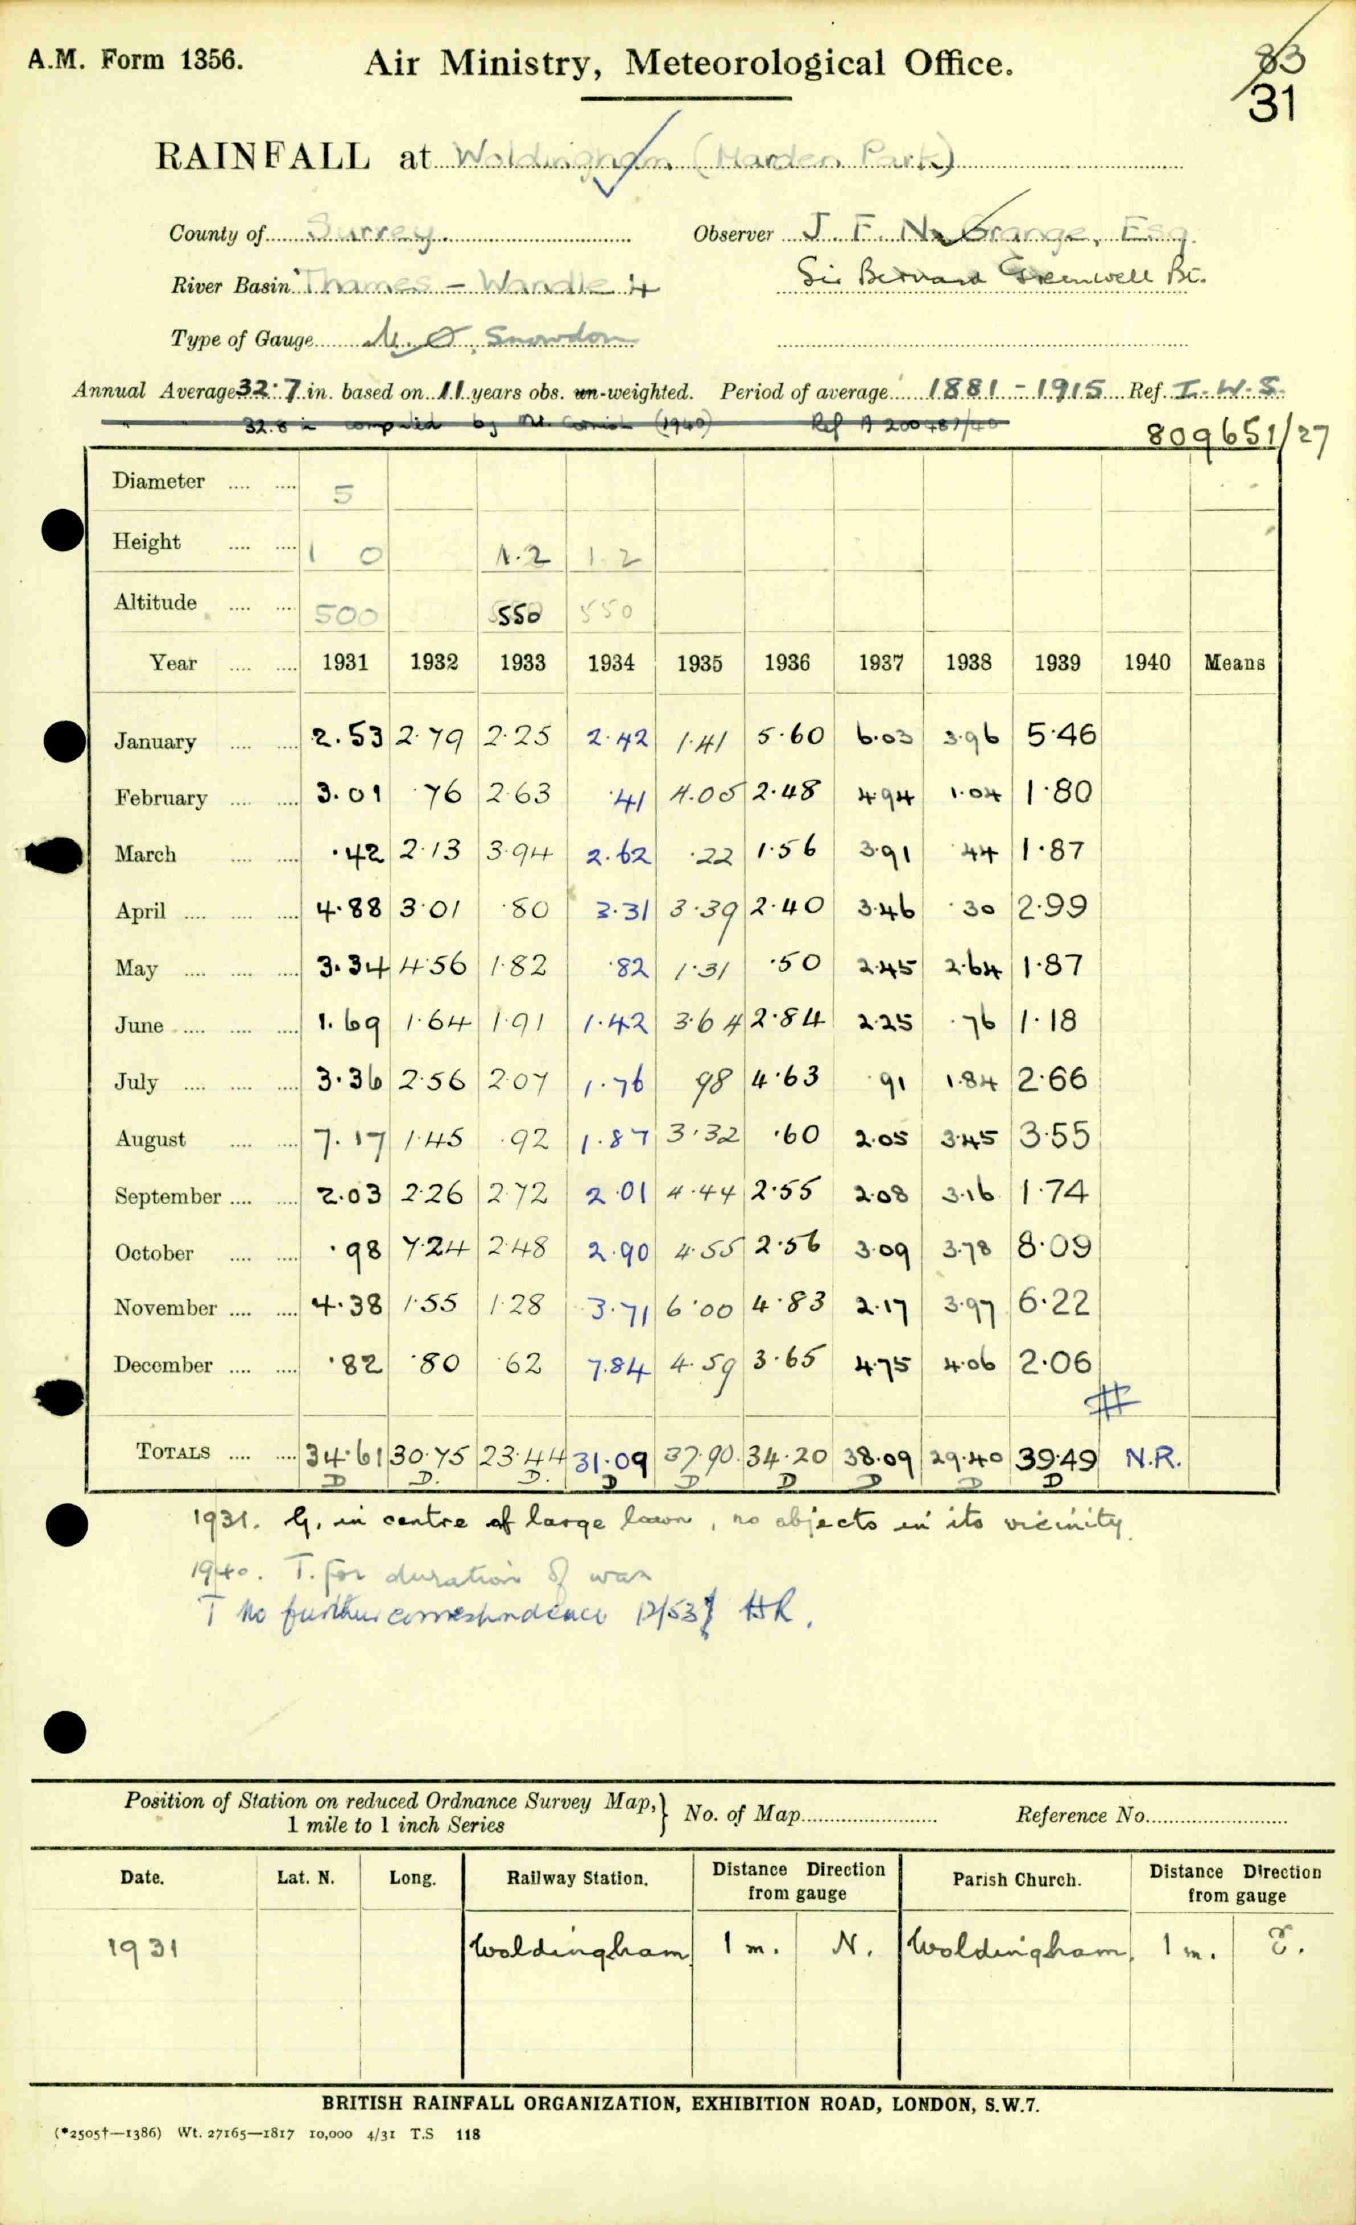 A.M. Form 1356.
Air Ministry, Meteorological Office.
83
31
RAINFALL at Woldingham (Marden Park)
County of Surrey.
Observer J. F. N. Grange, Esq.
River Basin Thames – Wandle 4
Sir Bernard Greenwell Bt.
Type of Gauge M.O. Snowdon
Annual Average 32.7 in. based on 11 years obs. un-weighted. Period of average 1881 - 1915 Ref. I.W.S.
32.8 in computed by Mr. Cornish (1940) Ref A 200487/40
809651/27
Diameter .... .... 5
Height .... .... 1 0 1.2 1.2
Altitude .... .... 500 550 550
Year .... .... 1931 1932 1933 1934 1935 1936 1937 1938 1939 1940 Means
January .... .... 2.53 2.79 2.25 2.42 1.41 5.60 6.03 3.96 5.46
February .... .... 3.01 .76 2.63 .41 4.05 2.48 4.94 1.04 1.80
March .... .... .42 2.13 3.94 2.62 .22 1.56 3.91 .44 1.87
April .... .... .... 4.88 3.01 .80 3.31 3.39 2.40 3.46 .30 2.99
May .... .... .... 3.34 4.56 1.82 .82 1.31 .50 2.45 2.64 1.87
June .... .... .... 1.69 1.64 1.91 1.42 3.64 2.84 2.25 .76 1.18
July .... .... .... 3.36 2.56 2.07 1.76 98 4.63 .91 1.84 2.66
August .... .... 7.17 1.45 .92 1.87 3.32 .60 2.05 3.45 3.55
September .... .... 2.03 2.26 2.72 2.01 4.44 2.55 2.08 3.16 1.74
October .... .... .98 7.24 2.48 2.90 4.55 2.56 3.09 3.78 8.09
November .... .... 4.38 1.55 1.28 3.71 6.00 4.83 2.17 3.97 6.22
December .... .... .82 .80 .62 7.84 4.59 3.65 4.75 4.06 2.06
#
TOTALS .... .... 34.61 30.75 23.44 31.09 37.90 34.20 38.09 29.40 39.49 N.R.
D D. D. D D D D D D
1931. G. in centre of large lawn, no objects in its vicinity.
1940. T. for duration of war
T No further correspondence 12/53 HR.
Position of Station on reduced Ordnance Survey Map,} No. of Map Reference No.
1 mile to 1 inch Series
Date. Lat. N. Long. Railway Station. Distance Direction from gauge Parish Church. Distance Direction from gauge
1931 Woldingham 1 m. N. Woldingham. 1 m. E.
BRITISH RAINFALL ORGANIZATION, EXHIBITION ROAD, LONDON, S.W.7.
(*2505†—1386) Wt. 27165—1817 10,000 4/31 T.S 118